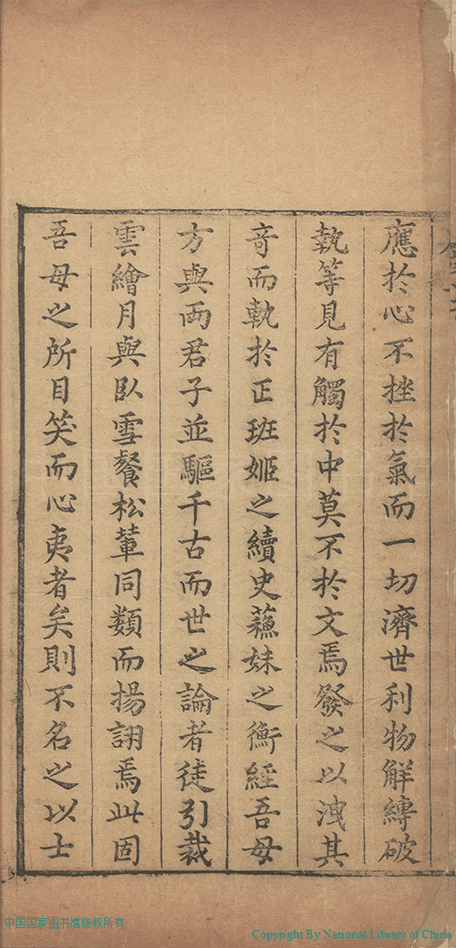 應於心不挫於氣而一切濟世利物解縛破
執等見有觸於中莫不於文焉發之以洩其
竒而軌於正班姬之續史蘓妹之衡經吾母
方與両君子並驅千古而世之論者徒引裁
雲繪月與臥雪餐松輩同類而揚詡焉此固
吾母之所目笑而心夷者矣則不名之以士
中国国家图书馆版权所有
Copyright By National Library of China